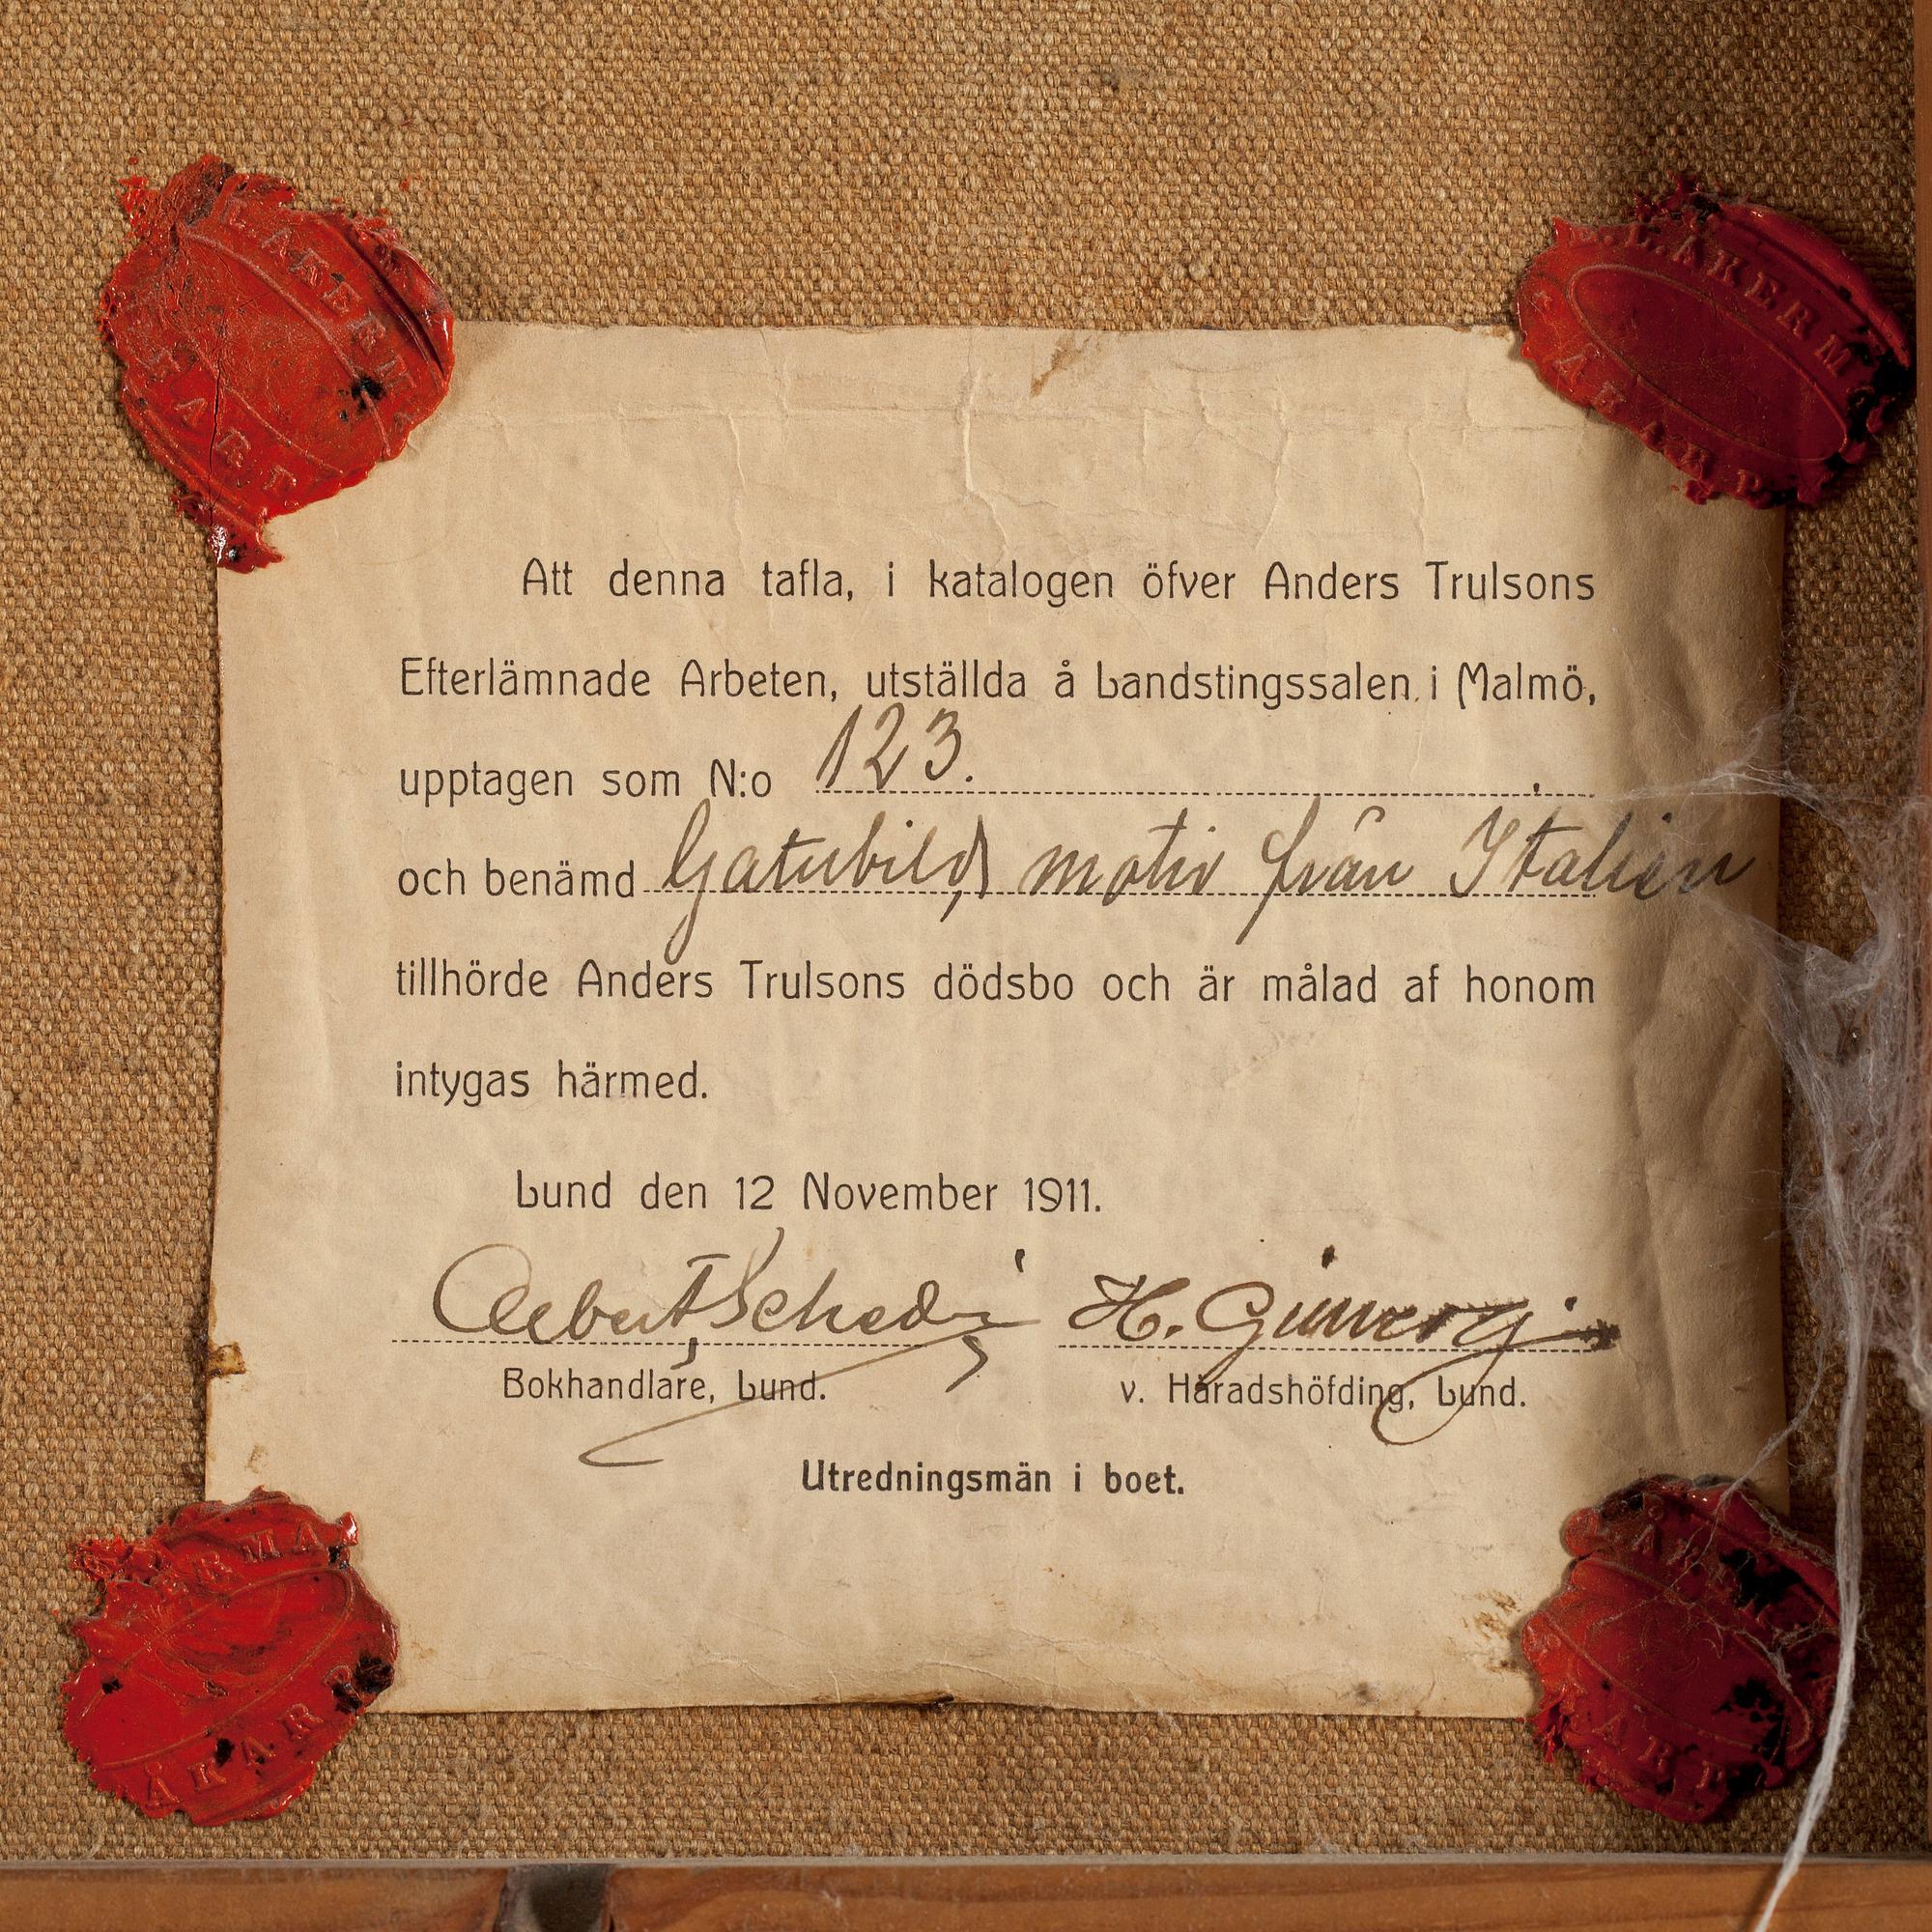 L. ÅKERM
ÅKARP
Att denna tafla, i katalogen öfver Anders Trulsons
Efterlämnade Arbeten, utställda å Landstingssalen i Malmö,
upptagen som N:o 123.
och benämd Gatubild, motiv från Italien
tillhörde Anders Trulsons dödsbo och är målad af honom
intygas härmed.
Lund den 12 November 1911.
H.
Bokhandlare, Lund. v. Häradshöfding, Lund.
Utredningsmän i boet.
ERMA
ÅKARP